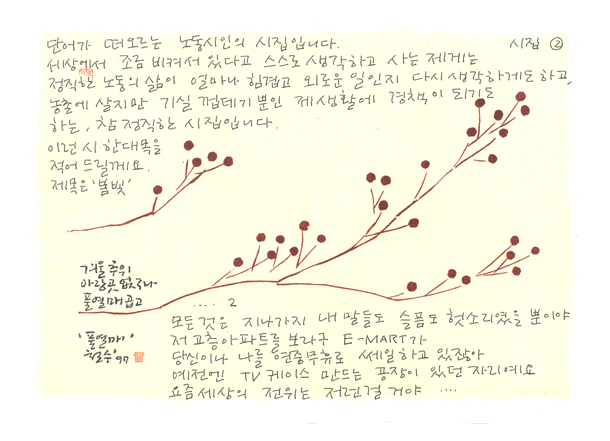 단어가 떠오르는 노동시인의 시집입니다.
시집 ②
세상에서 조금 비켜서 있다고 스스로 생각하고 사는 제게는
정직한 노동의 삶이 얼마나 힘겹고 외로운 일인지 다시 생각하게도 하고,
농촌에 살지만 기실 껍데기뿐인 제 생활에 경책이 되기도
하는, 참 정직한 시집입니다.
이런 시 한대목을
적어 드릴께요.
제목은 '봄빛'
겨울 추위
아랑곳 없구나
풀열매 곱고
'풀열매'
철수 '97
.... 2
모든것은 지나가지 내 말들도 슬픔도 헛소리였을 뿐이야
저 고층아파트를 보라구 E-MART가
당신이나 나를 연중무휴로 쎄일하고 있잖아
예전엔 TV 케이스 만드는 공장이 있던 자리예요
요즘세상의 전위는 저런걸 거야 ....